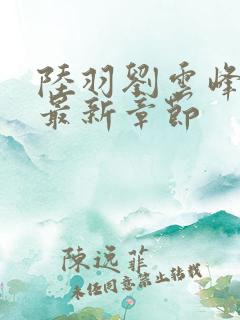 陸羽劉雲峰
最新章節
陳远菲
未经同意禁止转载